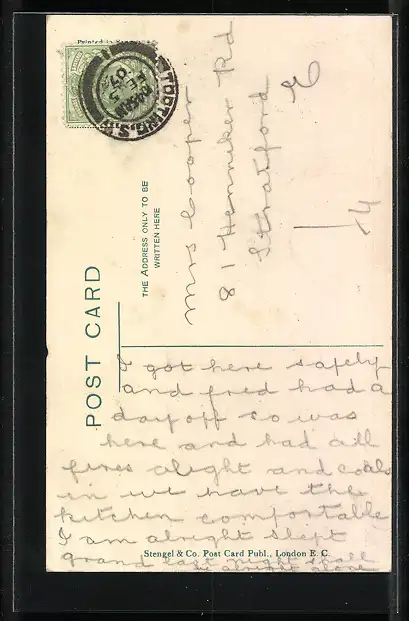 Printed in
TOOTING. S.
FE
07
POST CARD
THE ADDRESS ONLY TO BE
WRITTEN HERE
Mrs Cooper
81 Henniker Rd
Stratford
E
I got here safely
and fred had a
day off so was
here and had all
fires alight and coals
in we have the
kitchen comfortable
I am alright slept
grand last night shall
be alright alone
Stengel & Co. Post Card Publ., London E. C.